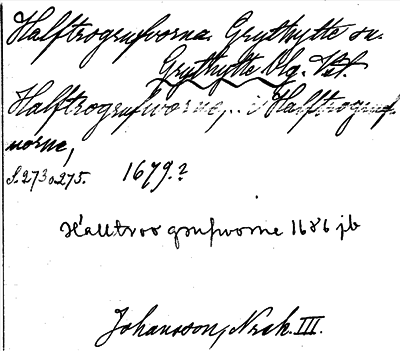 Halftrogrufvorna. Grythytte sn.
Grythytte Blg. Vstl.
Halftrogrufworne, .. i Halftrogruf-
worne,
S. 273 o. 275. 1679.?
Hälltroo grufworne 1686 jb
Johansson, Noch. III.